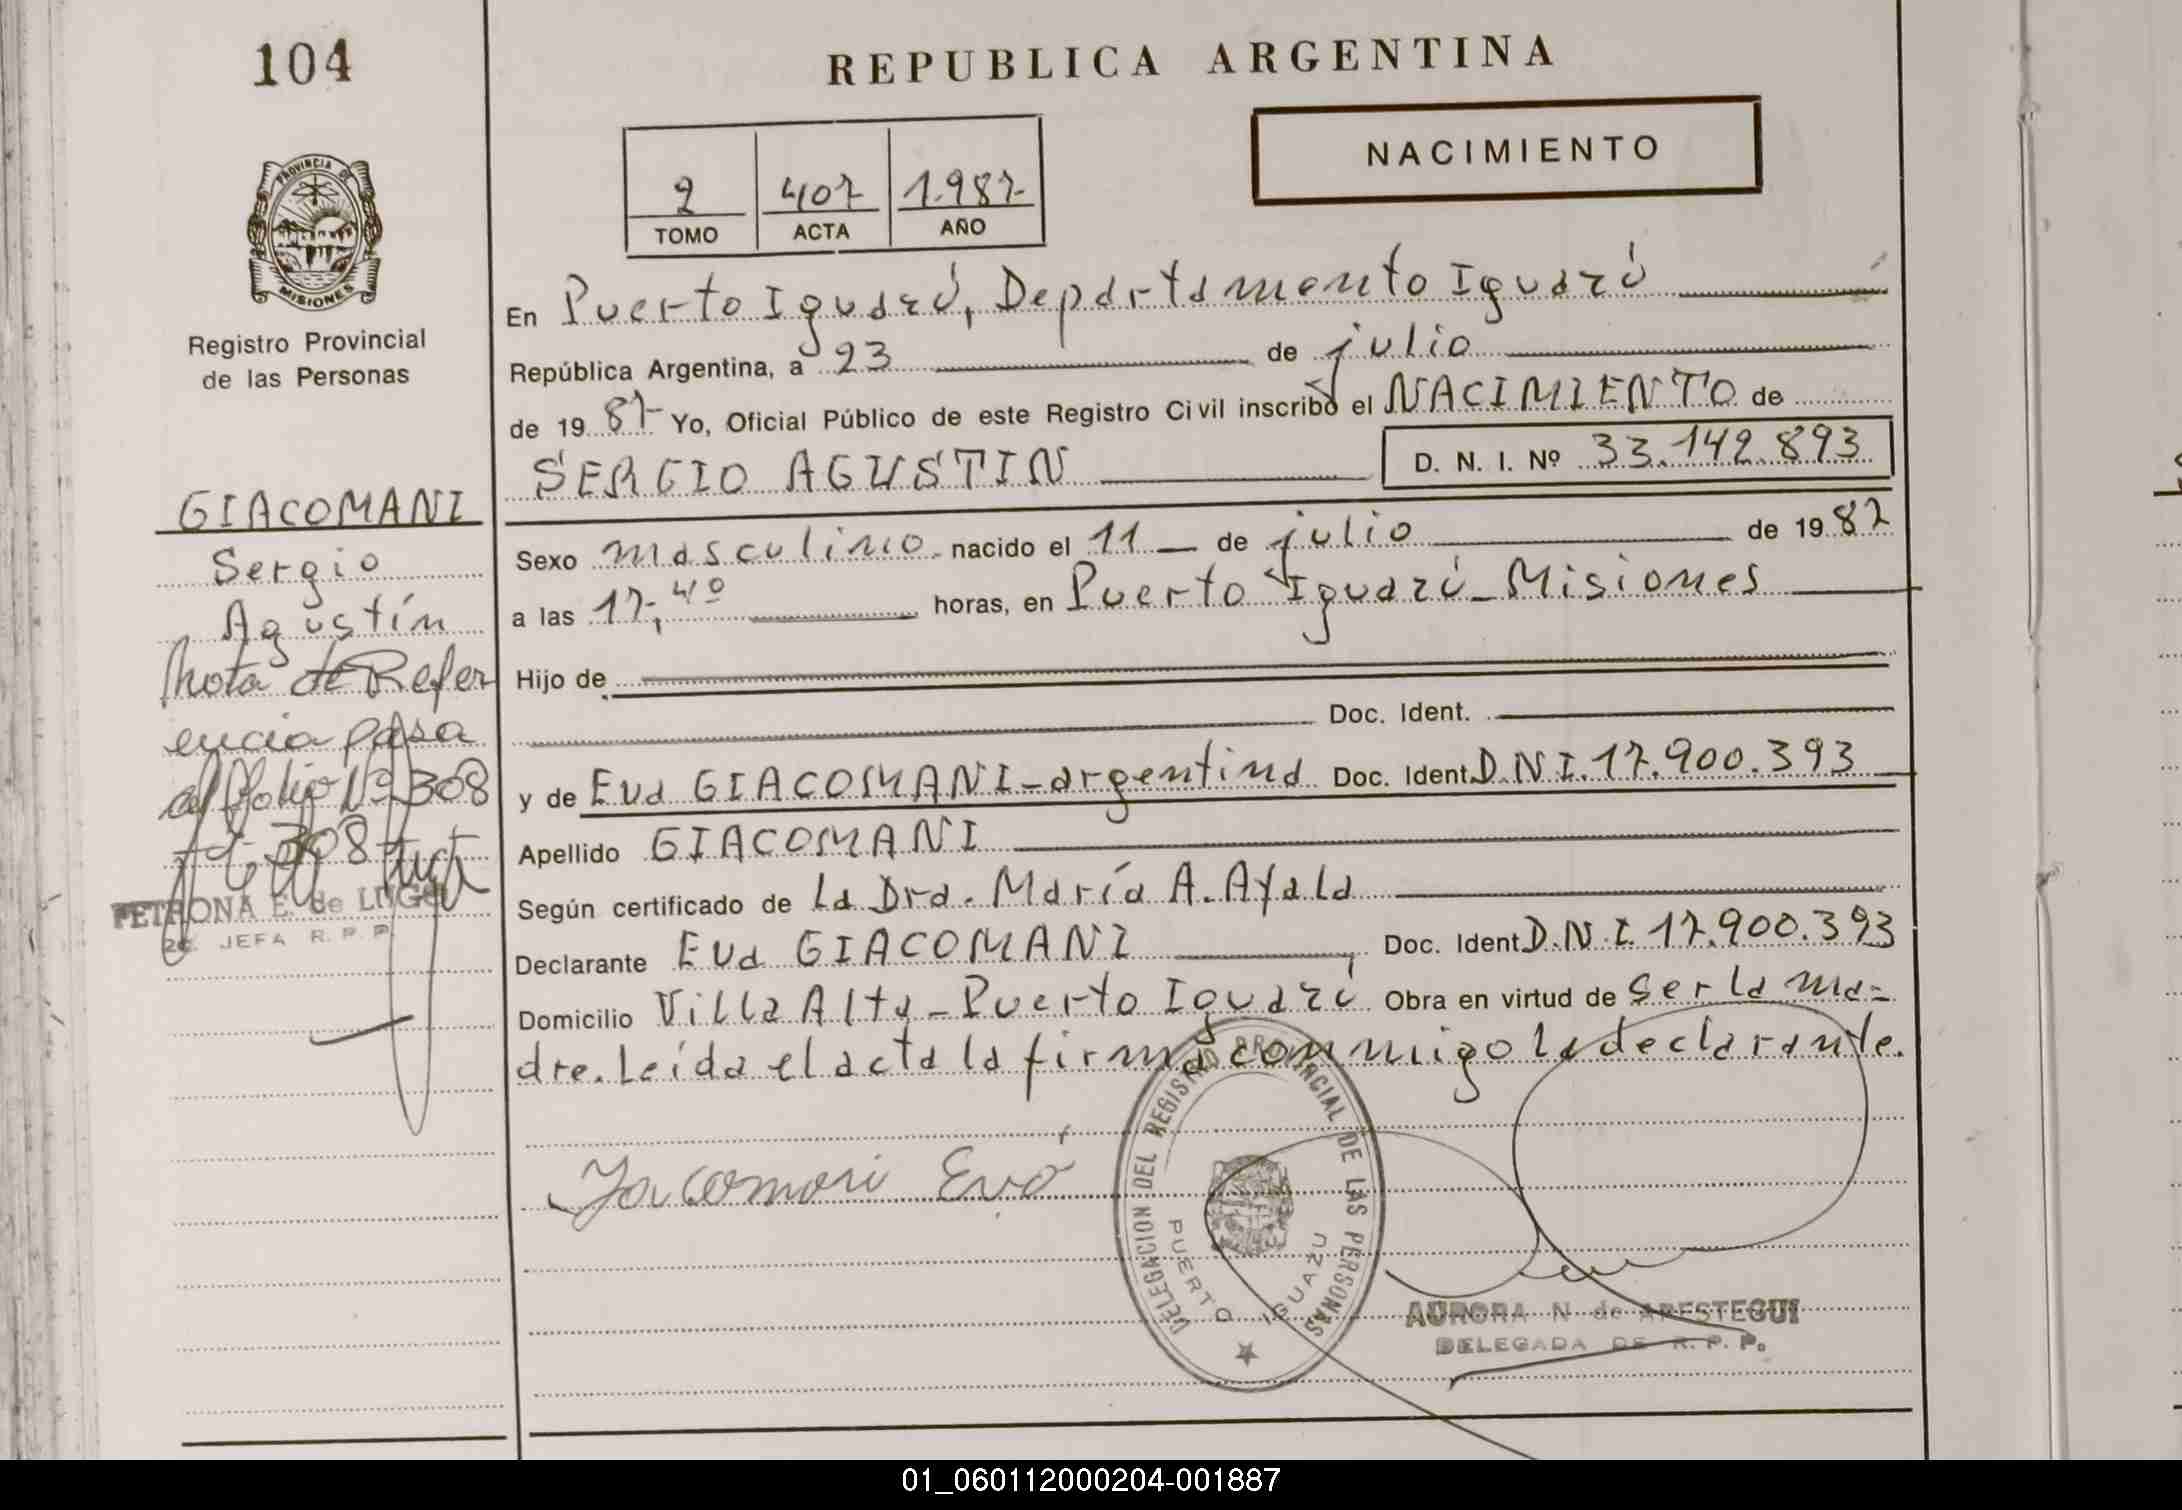 104
REPUBLICA ARGENTINA
NACIMIENTO
2 407 1.987-
TOMO ACTA AÑO
PROVINCIA DE MISIONES
Registro Provincial
de las Personas
En Puerto Iguazú, Departamento Iguazú
República Argentina, a 23 de julio
de 1987- Yo, Oficial Público de este Registro Civil inscribo el NACIMIENTO de
SERGIO AGUSTIN D. N. I. Nº 33.142.893
GIACOMANI
Sergio
Agustín
Nota de Refer
encia pasa
al folio Nº 308
308
PETRONA E. de LUGO
2a. JEFA R. P. P.
Sexo masculino. nacido el 11 de julio de 1987
a las 17,40 horas, en Puerto Iguazú - Misiones
Hijo de
Doc. Ident.
y de Eva GIACOMANI - argentina Doc. Ident. D.N.I. 17.900.393
Apellido GIACOMANI
Según certificado de La Dra. María A. Ayala
Declarante Eva GIACOMANI, Doc. Ident D.N.I. 17.900.393
Domicilio Villa Alta - Puerto Iguazú Obra en virtud de ser la ma-
dre. Leída el acta la firma conmigo la declarante.
Giacomani Eva
DELEGACION DEL REGISTRO PROVINCIAL DE LAS PERSONAS
PUERTO IGUAZU
AURORA N de ARESTEGUI
DELEGADA DE R. P. P.
01_060112000204-001887